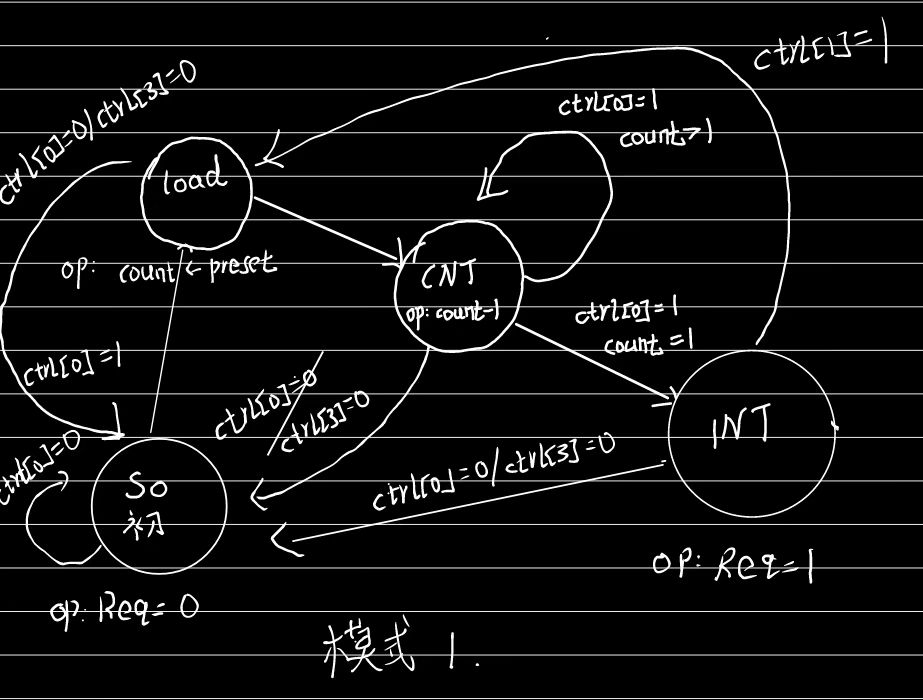 ctrl[1]=1
ctrl[0]=0/ctrl[3]=0
ctrl[0]=1
count>1
load
op: count ← preset
CNT
op: count-1
ctrl[0]=1
count=1
ctrl[0]=1
ctrl[0]=0
ctrl[3]=0
INT
ctrl[0]=0/ctrl[3]=0
ctrl[0]=0
S0
初
op: Req=1
op: Req=0
模式 1.